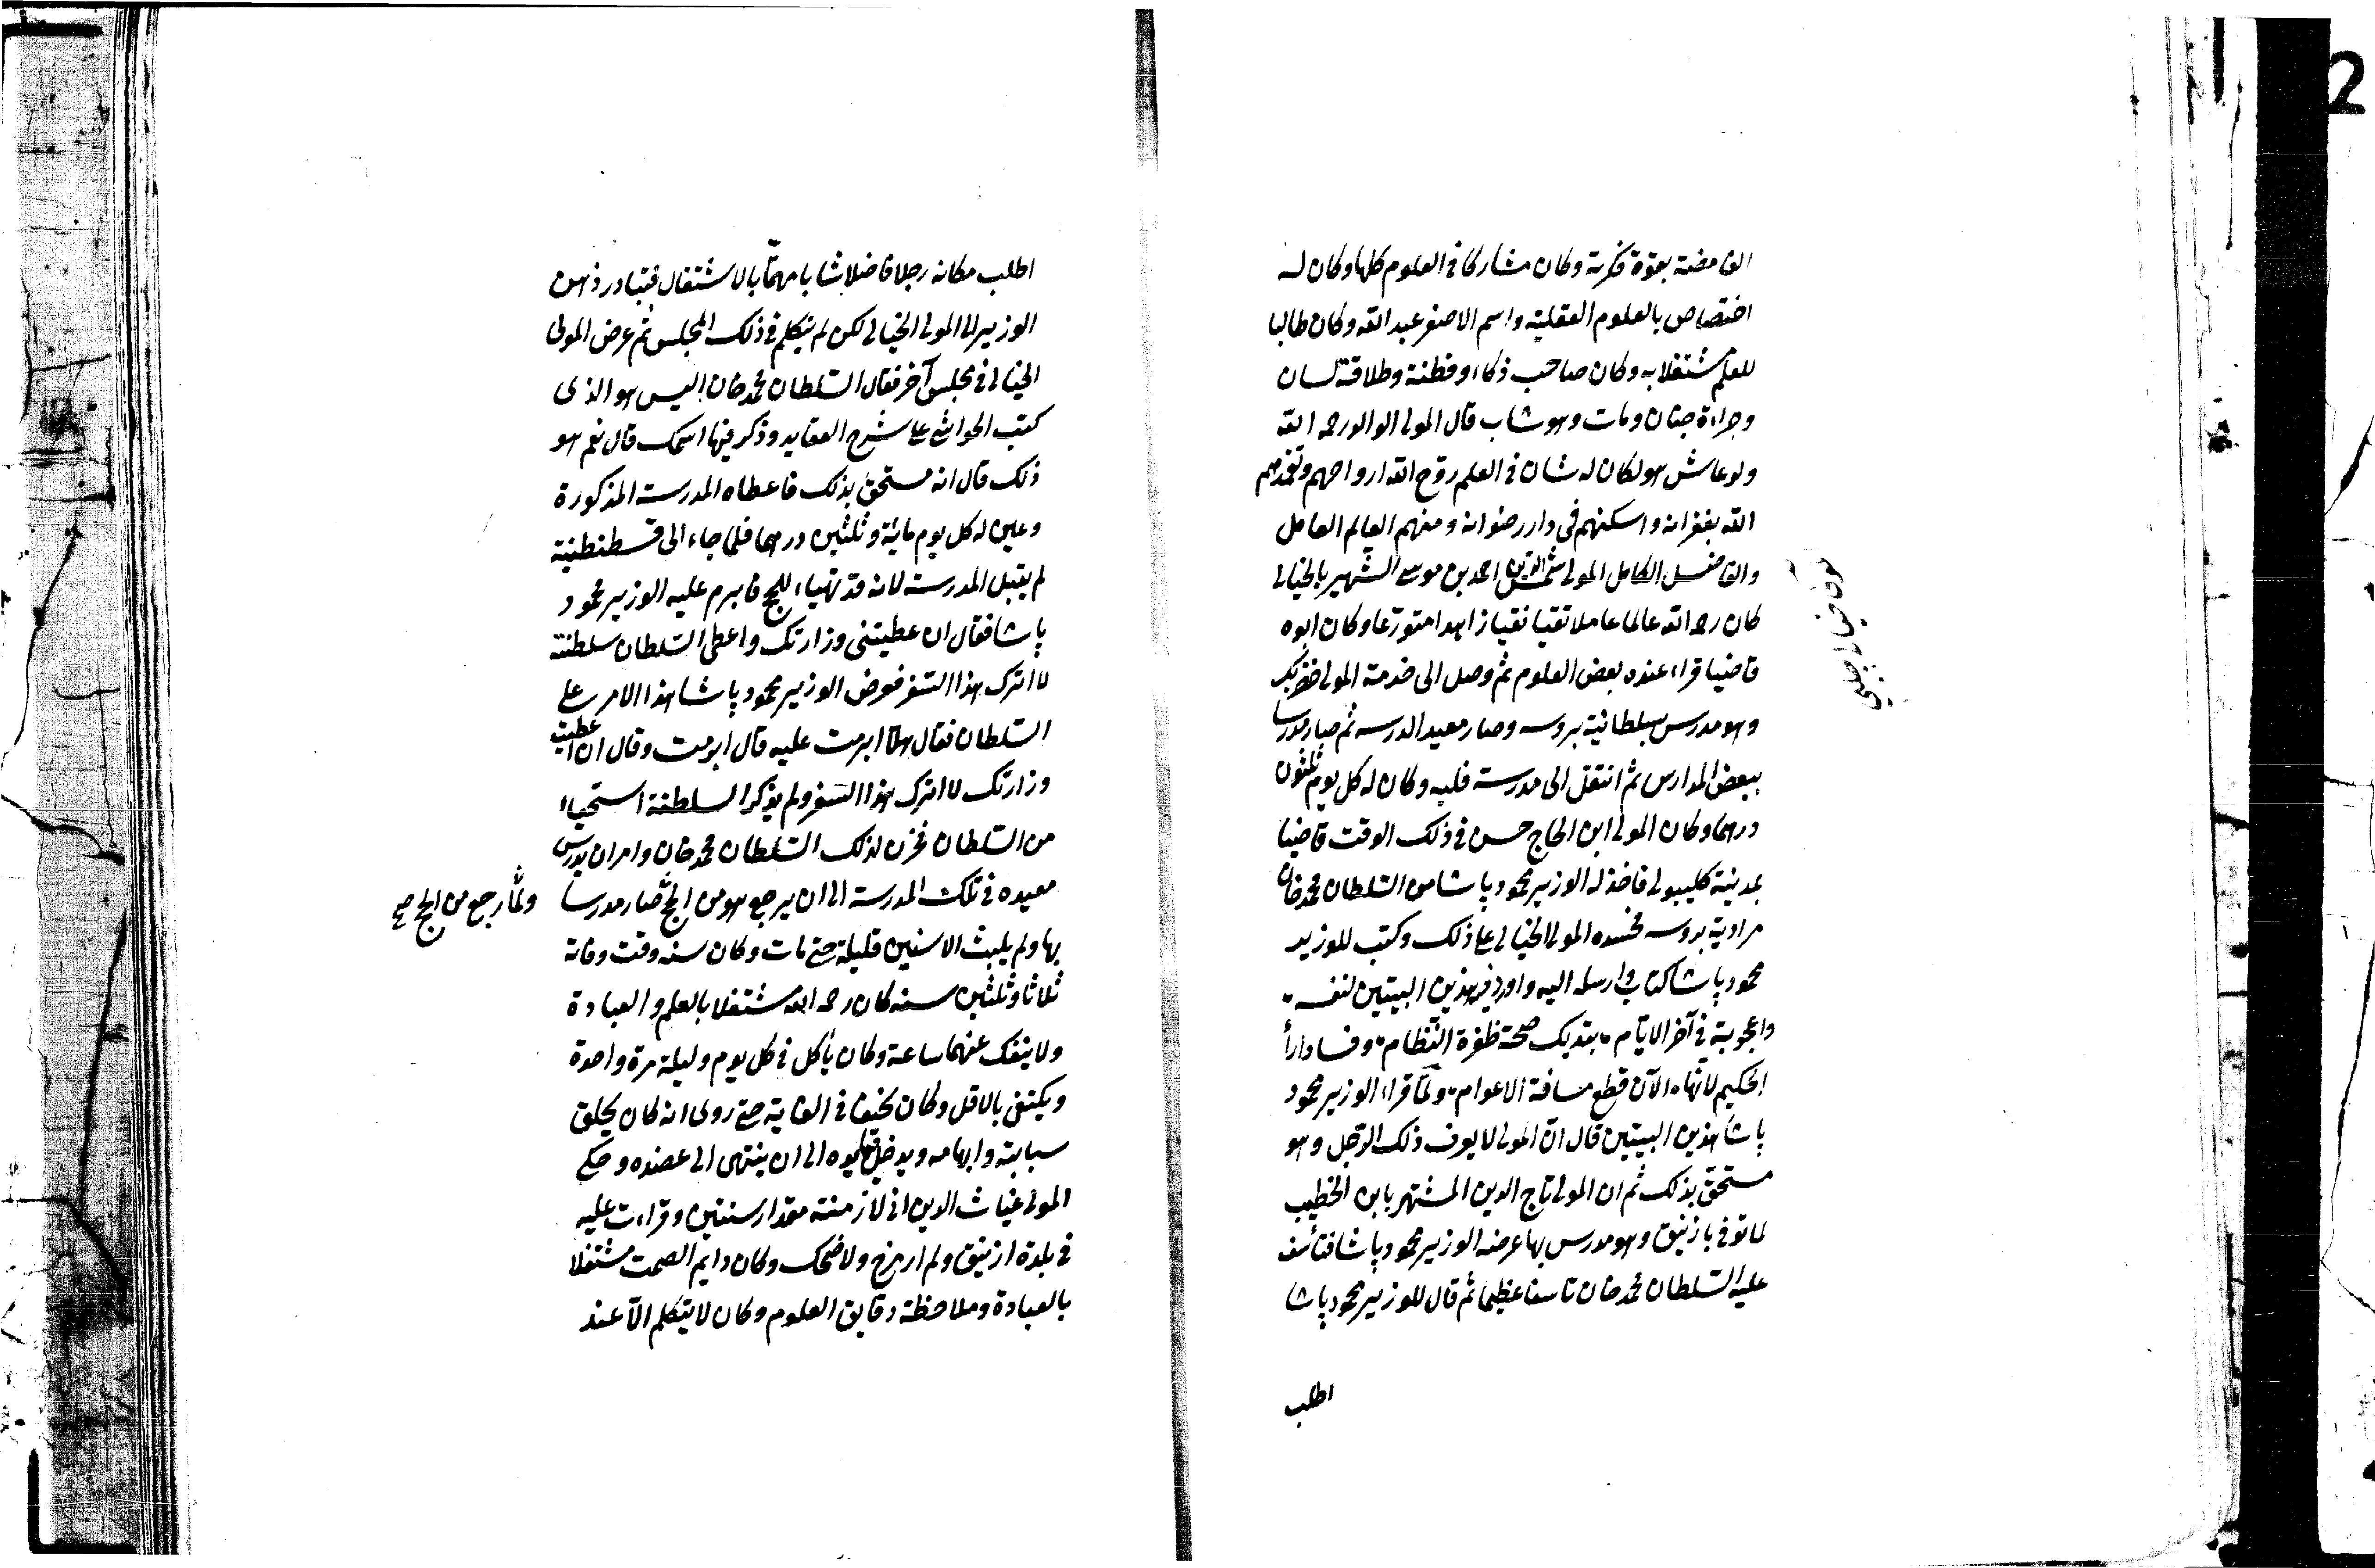 الغامضة بقوة فكرية وكان مشاركا فى العلوم كلها وكان له
اختصاص بالعلوم العقلية واسم الاصغر عبد الله وكان طالبا
للعلم مشتغلا به وكان صاحب ذكاء وفطنة وطلاقة لسان
وجراءة جنان ومات وهو شاب قال المولى الوالد رحمه الله
ولو عاش هو لكان له شان فى العلم روّح الله ارواحهم وتغمدهم
الله بغفرانه واسكنهم فى دار رضوانه ومنهم العالم العامل
والفاضل الكامل المولى شمس الدين احمد بن موسى الشهير بالخيالى
كان رحمه الله عالما عاملا تقيا نقيا زاهدا متورّعا وكان ابوه
قاضيا قراء عنده بعض العلوم ثم وصل الى خدمة المولى خضر بك
وهو مدرس بسلطانية بروسه وصار معيد الدرسه ثم صار مدرسا
ببعض المدارس ثم انتقل الى مدرسة فلبه وكان له كل يوم ثلثون
درهما وكان المولى ابن الحاج حسن فى ذلك الوقت قاضيا
بمدينة كليبولى فاخذ له الوزير محمود پاشا من السلطان محمد خان
مرادية بروسه فحسده المولى الخيالى على ذلك وكتب للوزير
محمود پاشا كتابا وارسله اليه واورد فيه هذين البيتين لنفسه
واعجوبة فى آخر الايّام تبديك صحة طفرة النّظّام وفساد رأى
الحكيم لانها الآن قطع مسافة الاعوام ولمّا قراء الوزير محمود
پاشا هذين البيتين قال انّ المولى لا يعرف ذلك الرّجل وهو
مستحقّ بذلك ثم ان المولى تاج الدين المشتهر بابن الخطيب
لما توفى بازنيق وهو مدرس بها عرضه الوزير محمود پاشا فتأسف
عليه السّلطان محمد خان تاسفا عظيما ثم قال للوزير محمود پاشا
اطلب
مولانا خيالى چلبى
اطلب مكانه رجلا فاضلا شابا مهتمّا بالاشتغال فتبادر ذهن
الوزير الى المولى الخيالى لكن لم يتكلم فى ذلك المجلس ثم عرض المولى
الخيالى فى مجلس آخر فقال السّلطان محمد خان اليس هو الذى
كتب الحواشى على شرح العقايد وذكر فيها اسمك قال نعم هو
ذلك قال انه مستحق بذلك فاعطاه المدرسة المذكورة
وعين له كل يوم مائة وثلثين درهما فلما جاء الى قسطنطنية
لم يقبل المدرسة لانه قد تهياء للحج فابرم عليه الوزير محمود
پاشا فقال ان عطيتنى وزارتك واعطى السّلطان سلطنته
لا اترك هذا السّفر فعرض الوزير محمود پاشا هذا الامر على
السّلطان فقال هلّا ابرمت عليه قال ابرمت وقال ان اعطيت
وزارتك لا اترك هذا السّفر ولم يذكر السلطنة استحياء
من السّلطان فحزن لذلك السّلطان محمد خان وامر ان يدرس
معيده فى تلك المدرسة الى ان يرجع هو من الحج صار مدرسا
ولمّا رجع من الحج صح
بها ولم يلبث الا سنين قليلة حتى مات وكان سنه وقت وفاته
ثلاثا وثلثين سنه كان رحمه الله مشتغلا بالعلم والعبادة
ولا ينفك عنهما ساعة وكان يأكل فى كل يوم وليلة مرة واحدة
ويكتفى بالاقل وكان نحيفا فى الغاية حتى روى انه كان يحلق
سبابته وابهامه ويدخل فيها يده الى ان ينتهى الى عضده وحكى
المولى غياث الدين انى لازمته مقدار سنتين وقراءت عليه
فى بلدة ازنيق ولم ار فرح ولا ضحك وكان دايم الصمت مشتغلا
بالعبادة وملاحظة دقايق العلوم وكان لا يتكلم الّا عند